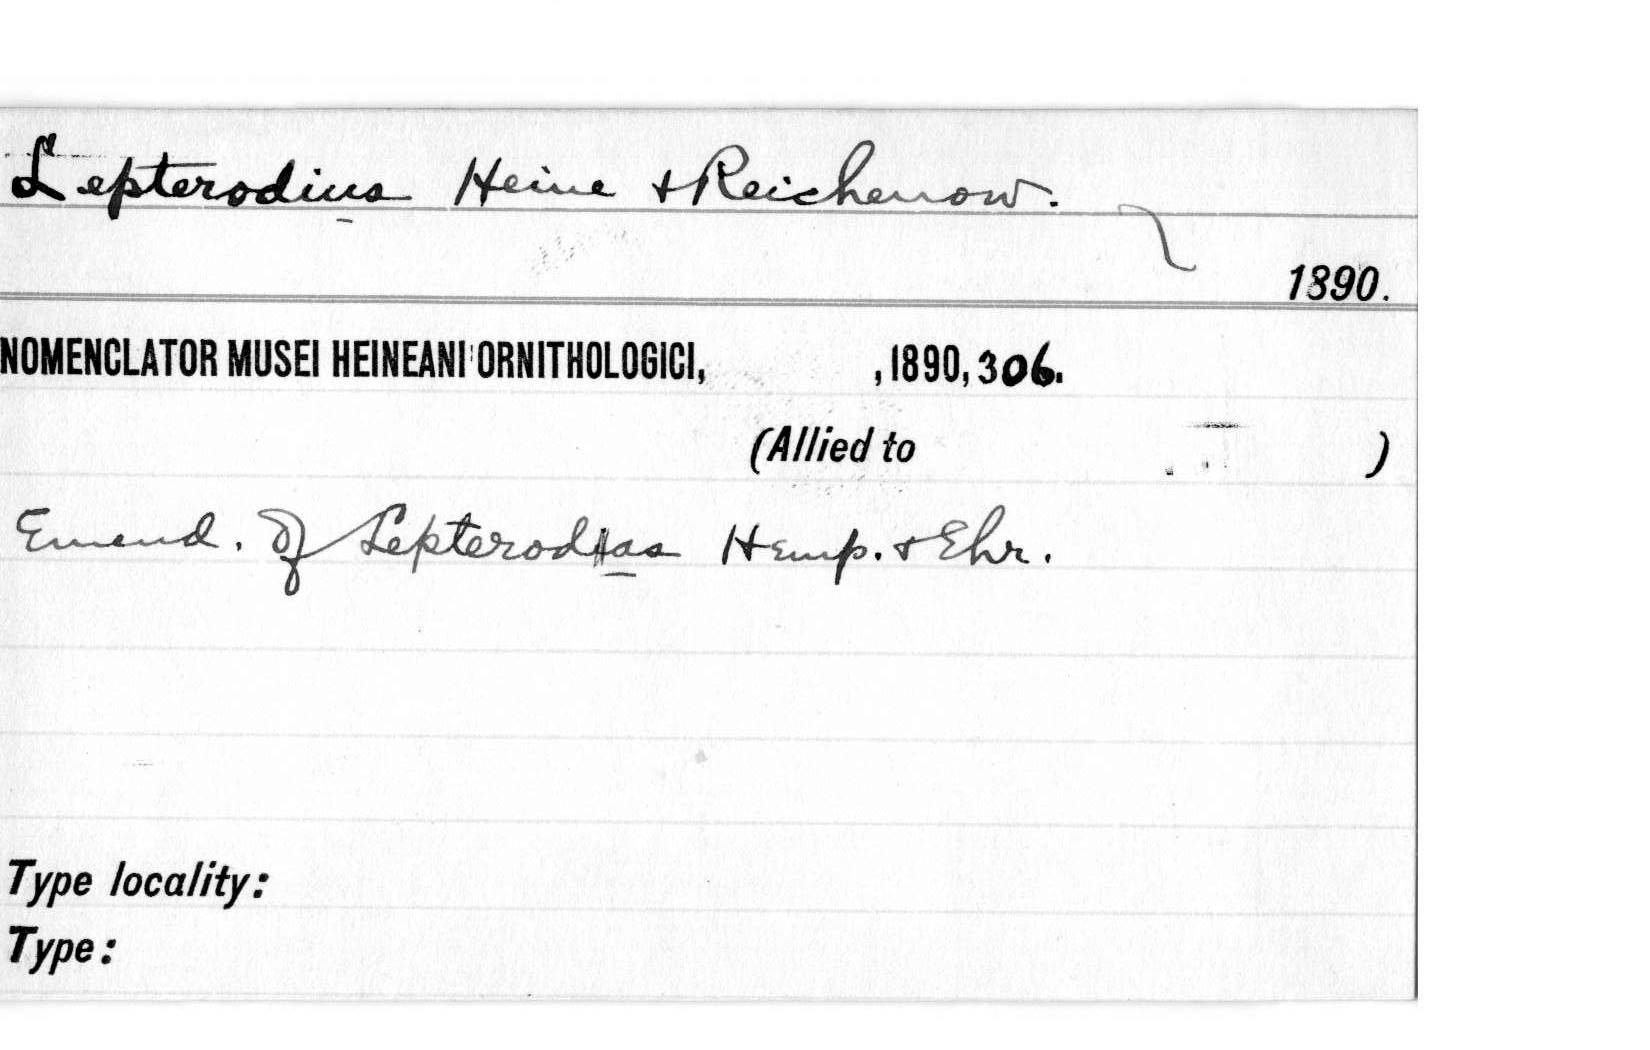 Lepterodius Heine & Reichenow.
1890.
NOMENCLATOR MUSEI HEINEANI ORNITHOLOGICI, , 1890, 306.
(Allied to )
Emend. of Lepterodas Hemp. & Ehr.
Type locality:
Type: